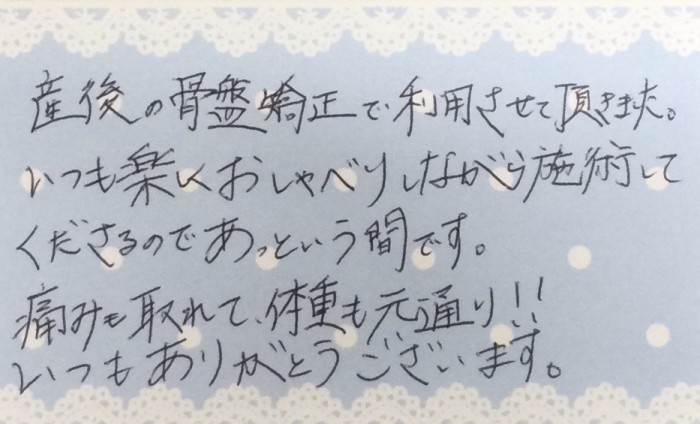 産後の骨盤矯正で利用させて頂きました。
いつも楽しくおしゃべりしながら施術して
くださるのであっという間です。
痛みも取れて、体重も元通り!!
いつもありがとうございます。